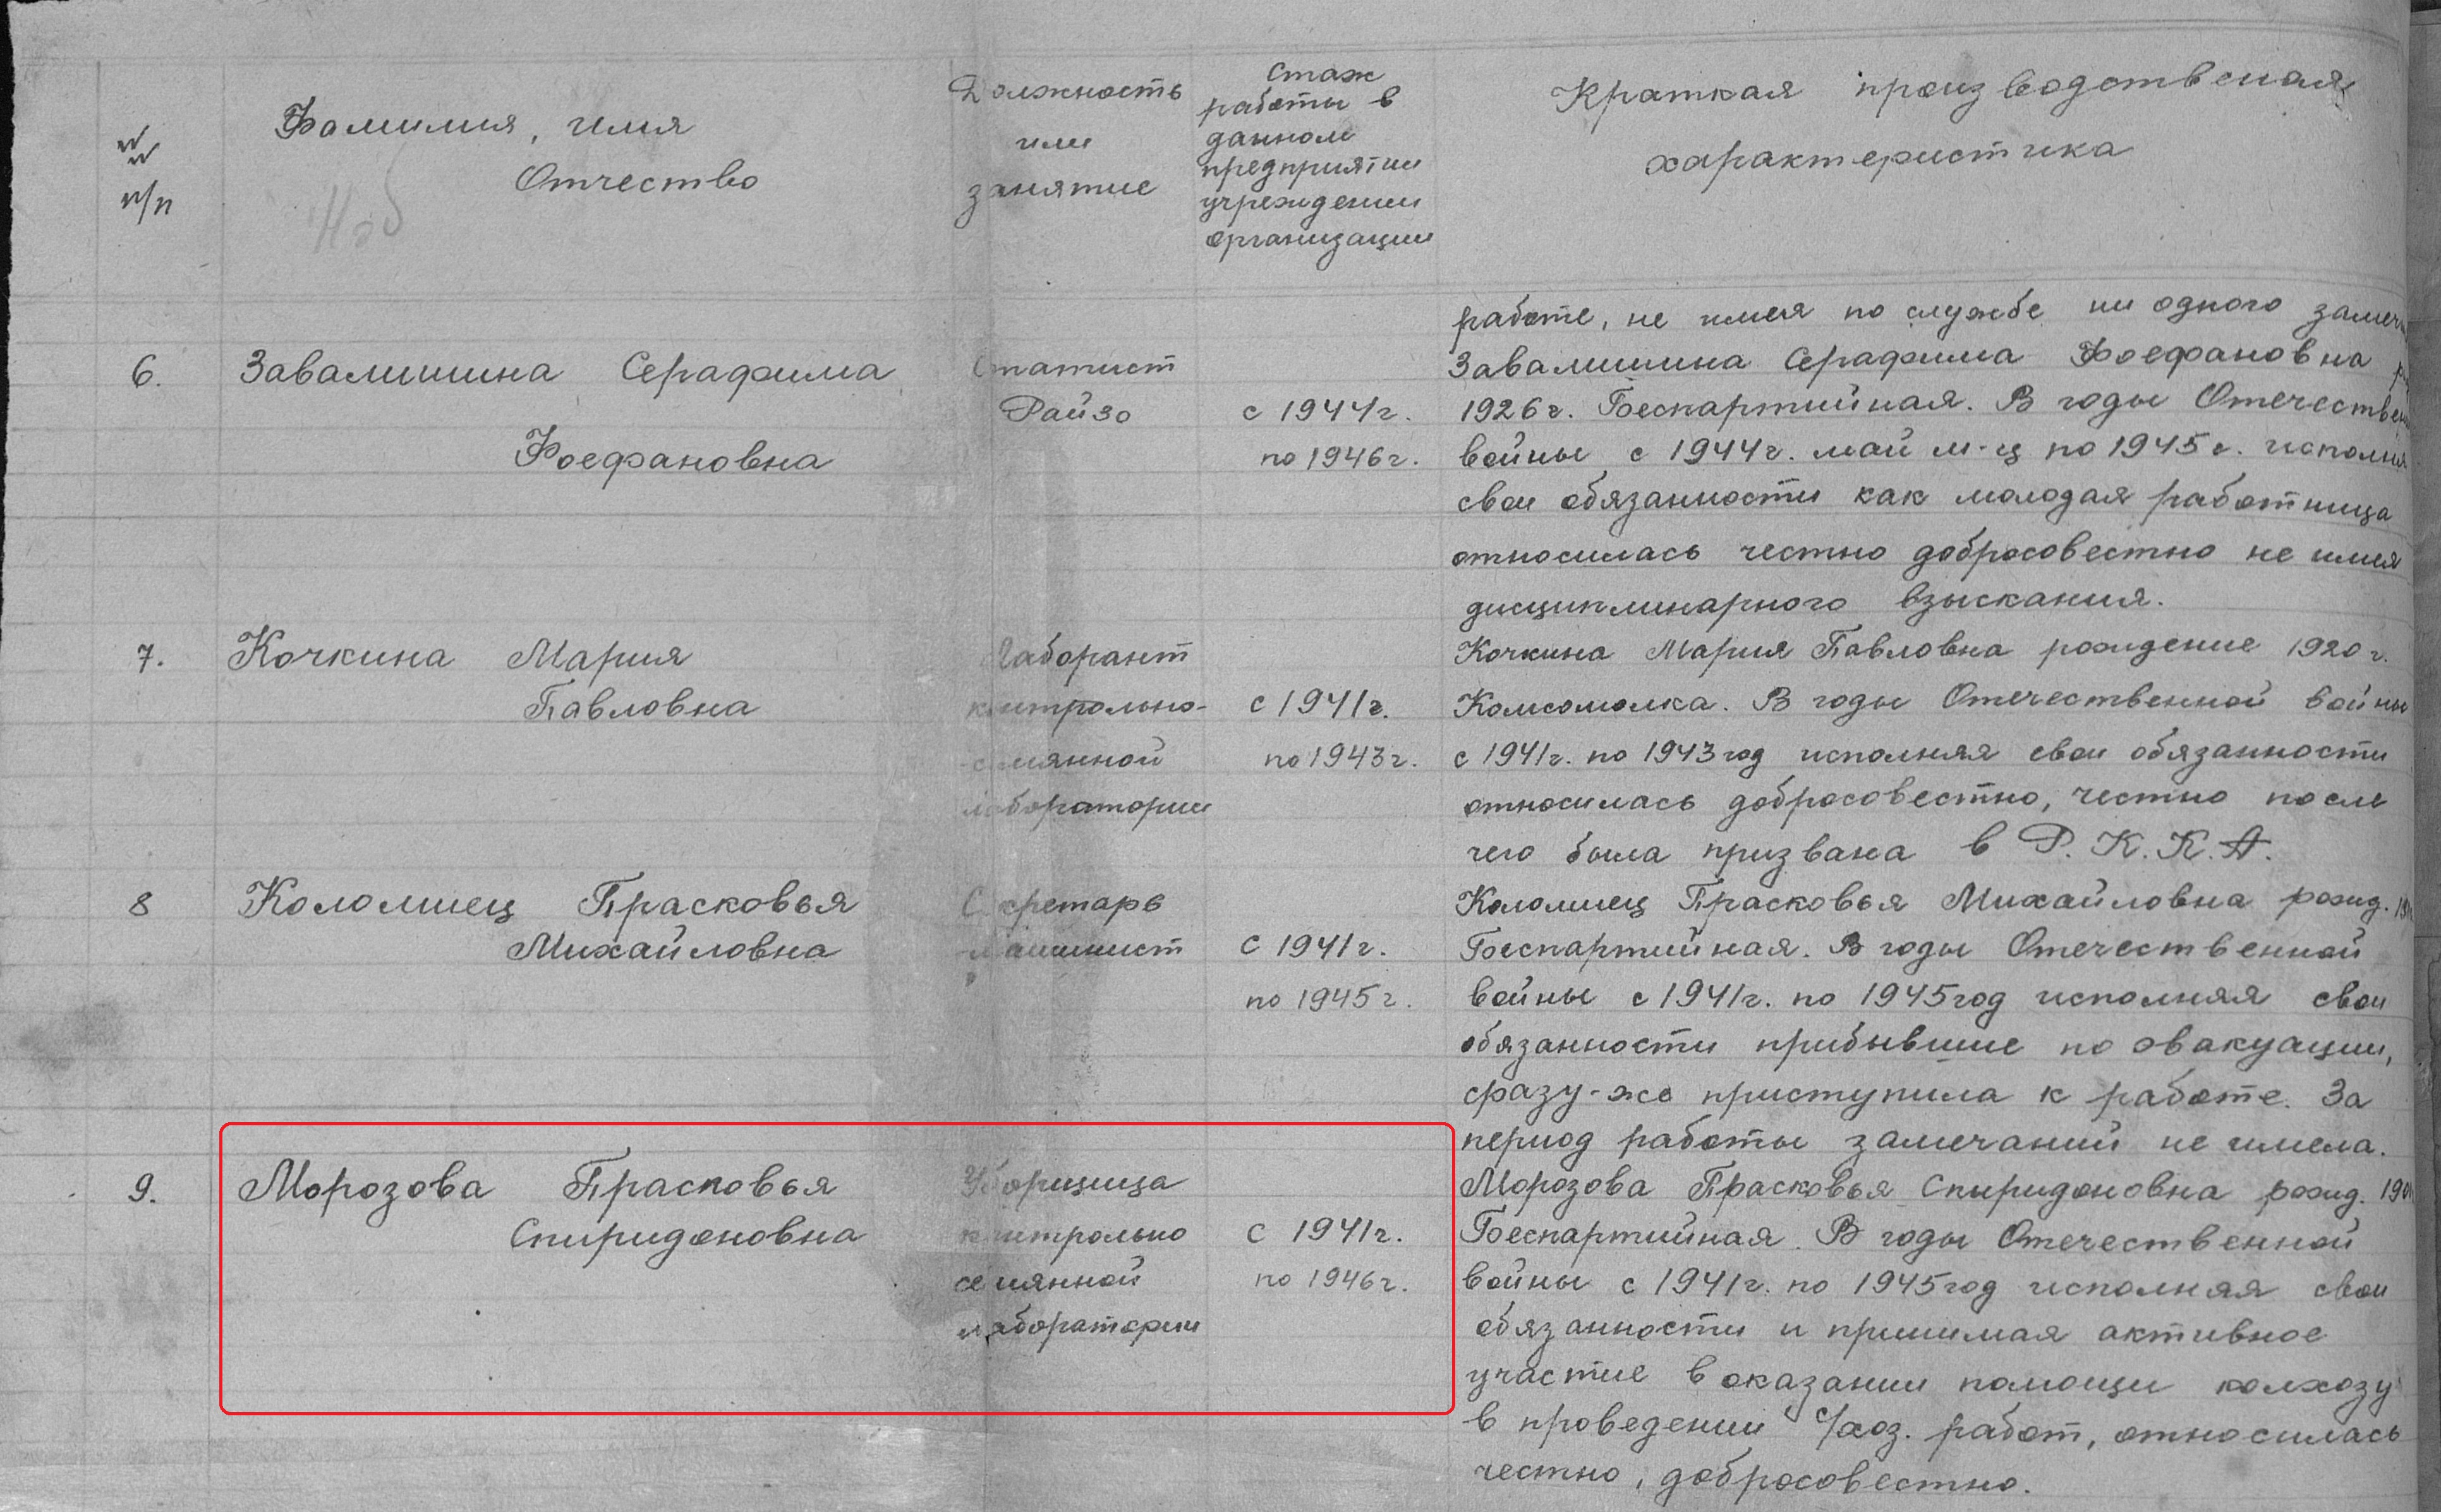 №№ п/п
Фамилия, имя
Отчество
Должность
или
занятие
Стаж
работы в
данном
предприятии
учреждении
организации
Краткая производственная
характеристика
работе, не имея по службе ни одного
6. Завалишина Серафима
Феофановна
Статист
Райзо
с 1944г.
по 1946г.
Завалишина Серафима Феофановна
1926г. Беспартийная. В годы
войны с 1944г. май м-ц по 1945г.
свои обязанности как молодая работница
относилась честно добросовестно не имея
дисциплинарного взыскания.
7. Кочкина Мария
Павловна
Лаборант
контрольно-
семянной
лаборатории
с 1941г.
по 1943г.
Кочкина Мария Павловна рождение 1920г.
Комсомолка. В годы Отечественной войны
с 1941г. по 1943год исполняя свои обязанности
относилась добросовестно, честно после
чего была призвана в Р.К.К.А.
8 Коломиец Прасковья
Михайловна
Секретарь
машинист
С 1941г.
по 1945г.
Коломиец Прасковья Михайловна рожд.
Беспартийная. В годы Отечественной
войны с 1941г. по 1945год исполняя свои
обязанности прибывшие по эвакуации,
сразу-же приступила к работе. За
период работы замечаний не имела.
9. Морозова Прасковья
Спиридоновна
Уборщица
контрольно
семянной
лаборатории
С 1941г.
по 1946г.
Морозова Прасковья Спиридоновна рожд.
Беспартийная. В годы Отечественной
войны с 1941г. по 1945год исполняя свои
обязанности и принимая активное
участие в оказании помощи колхозу
в проведении с/хоз. работ, относилась
честно, добросовестно.